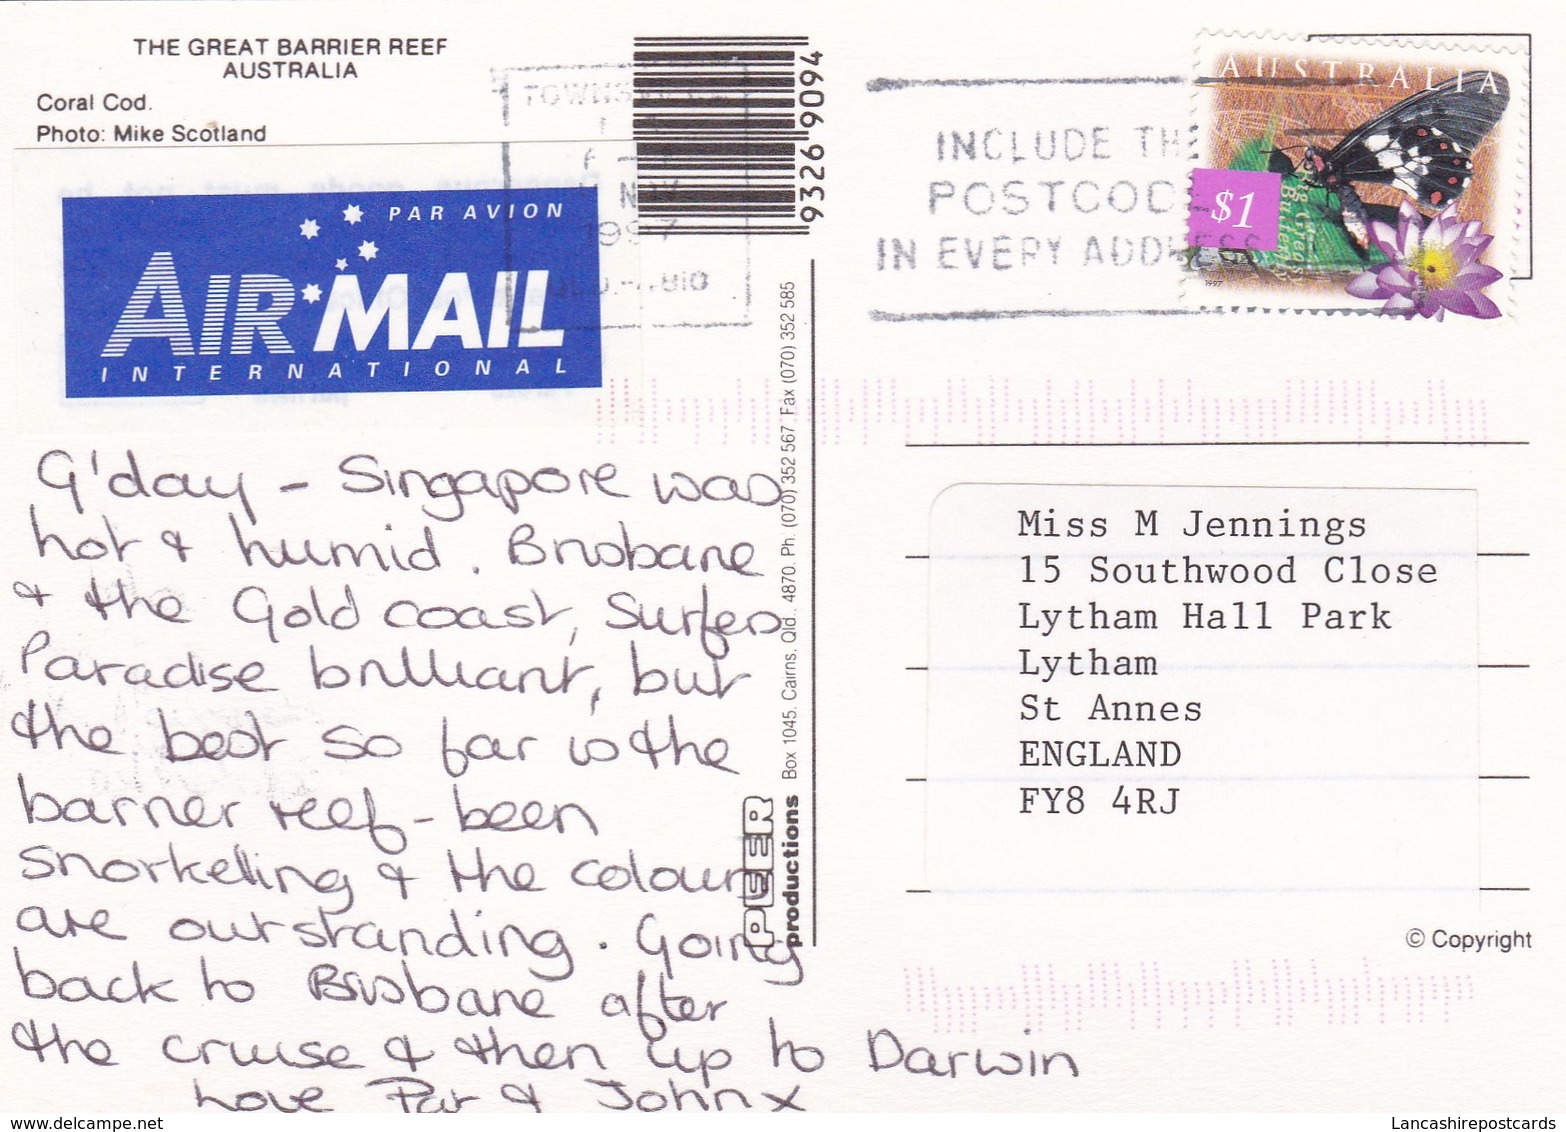 THE GREAT BARRIER REEF
AUSTRALIA
Coral Cod.
Photo: Mike Scotland
PAR AVION
AIR MAIL
INTERNATIONAL
G'day - Singapore was
hot & humid. Brisbane
& the Gold coast, Surfers
Paradise brilliant, but
the best so far is the
barrier reef - been
snorkelling & the colours
are outstanding. Going
back to Brisbane after
the cruise & then up to Darwin
Love Pat & John x
9326 9094
1997
PEER
productions
Box 1045. Cairns. Qld., 4870. Ph. (070) 352 567 Fax (070) 352 585
INCLUDE THE
POSTCODE
IN EVERY ADDRESS
AUSTRALIA
$1
1997
Miss M Jennings
15 Southwood Close
Lytham Hall Park
Lytham
St Annes
ENGLAND
FY8 4RJ
© Copyright
www.delcampe.net
Lancashirepostcards